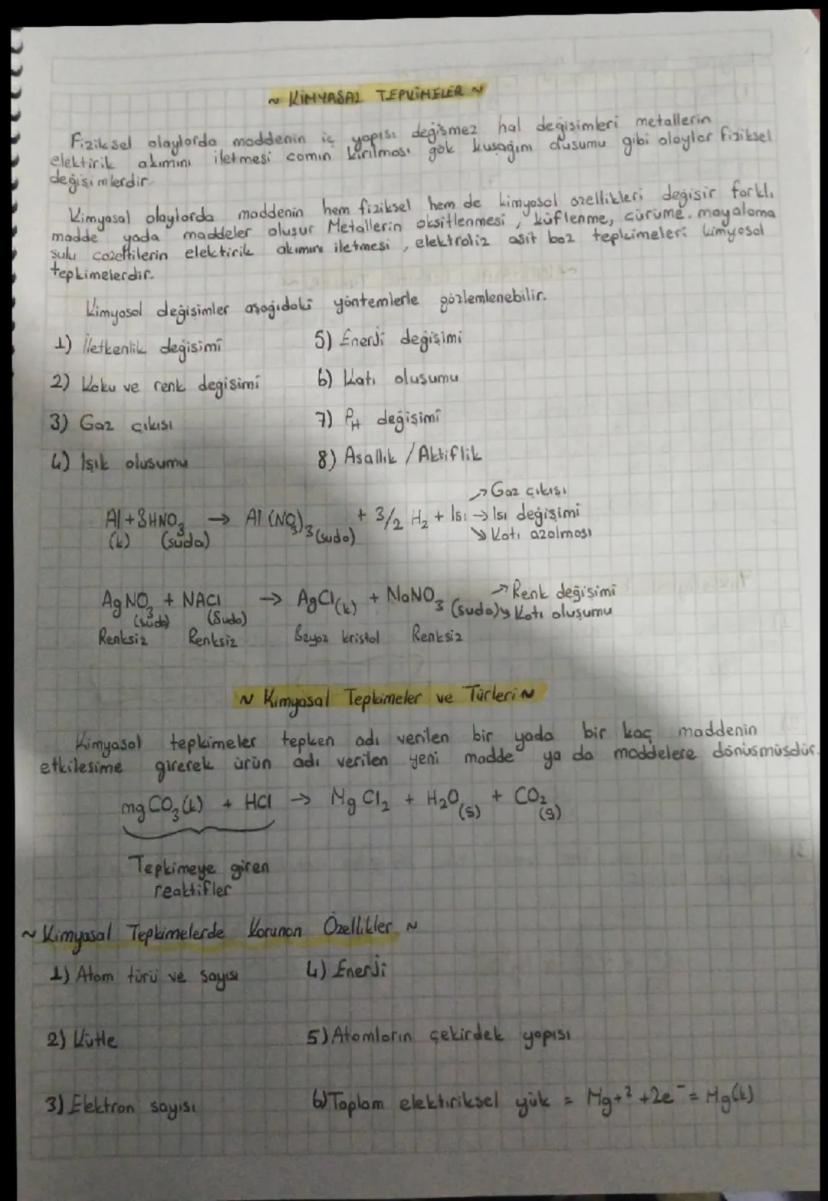 ~ KİMYASAL TEPKİMELER ~
Fiziksel olaylarda maddenin iç yapısı değişmez hal değişimleri metallerin
elektirik akımını iletmesi camın kırılması gök kuşağını düşumu gibi olaylar fiziksel
değişimlerdir.
Kimyasal olaylarda maddenin hem fiziksel hem de kimyasal özellikleri değişir farklı
madde yada maddeler oluşur Metallerin oksitlenmesi, küflenme, çürüme. mayalama
sulu çözeltilerin elektirik akımını iletmesi, elektroliz asit baz tepkimeleri kimyasal
tepkimelerdir.
Kimyasal değişimler aşağıdaki yöntemlerle gözlemlenebilir.
1) İletkenlik değişimi 5) Enerji değişimi
2) Koku ve renk değişimi 6) Katı oluşumu
3) Gaz çıkışı 7) PH değişimi
4) Işık oluşumu 8) Asallık / Aktiflik
↗ Gaz çıkışı
Al + 3HNO₃ → Al(NO₃)₃(suda) + 3/2 H₂ + Isı → Isı değişimi
(k) (suda) ↘ Katı azalması
AgNO₃ + NACl → AgCl(k) + NaNO₃ (suda) ↗ Renk değişimi
(suda) (Suda) ↘ Katı oluşumu
Renksiz Renksiz Beyaz kristal Renksiz
~ Kimyasal Tepkimeler ve Türleri ~
Kimyasal tepkimeler tepken adı verilen bir yada bir kaç maddenin
etkileşime girerek ürün adı verilen yeni madde ya da maddelere dönüşmüşdür.
mgCO₃(k) + HCl → MgCl₂ + H₂O(s) + CO₂(g)
Tepkimeye giren
reaktifler
~ Kimyasal Tepkimelerde Korunan Özellikler ~
1) Atom türü ve sayısı 4) Enerji
2) Kütle 5) Atomların çekirdek yapısı
3) Elektron sayısı 6) Toplam elektiriksel yük = Mg+² + 2e⁻ = Mg(k)